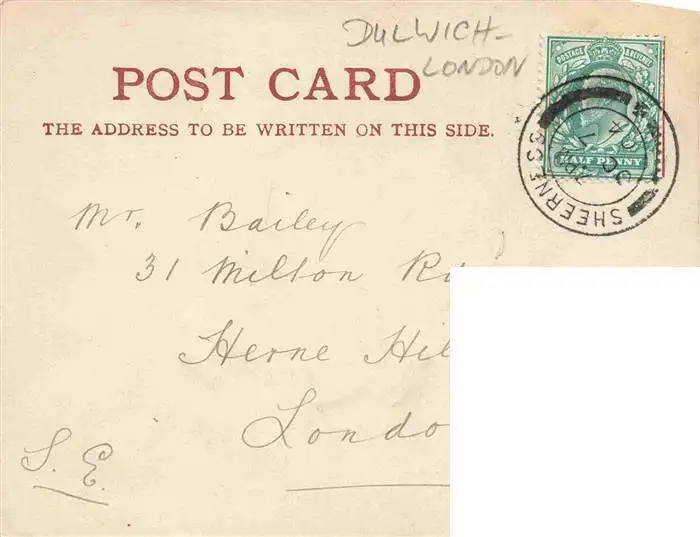 DULWICH-
LONDON
POST CARD
THE ADDRESS TO BE WRITTEN ON THIS SIDE.
POSTAGE & REVENUE
HALF PENNY
SHEERNESS
Mr. Bailey
31 Milton R
Herne Hil
Londo
S.E.